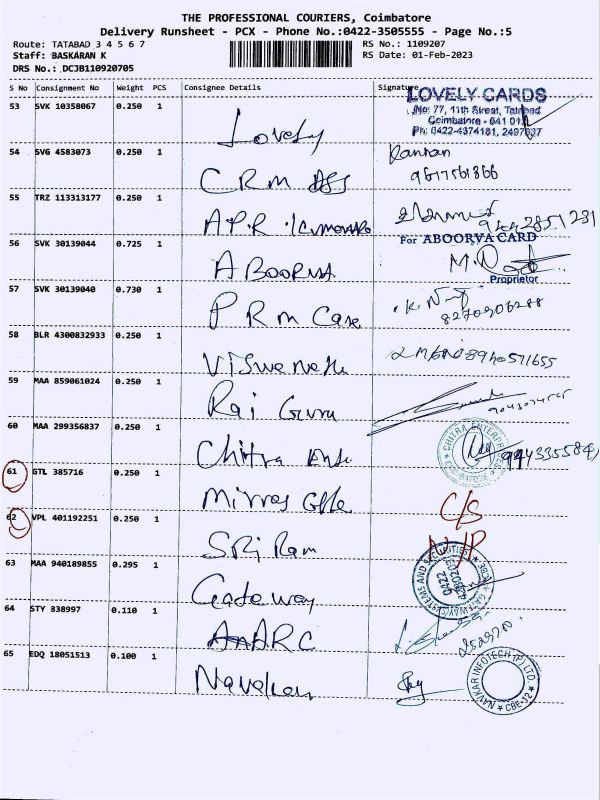 THE PROFESSIONAL COURIERS, Coimbatore
Delivery Runsheet - PCX - Phone No.:0422-3505555 - Page No.:5
Route: TATABAD 3 4 5 6 7 RS No.: 1109207
Staff: BASKARAN K RS Date: 01-Feb-2023
DRS No.: DCJB110920705
S No Consignment No Weight PCS Consignee Details Signature
LOVELY CARDS
No: 77, 11th Street, Tatabad
Coimbatore - 641 012
Ph: 0422-4374181, 2497837
53 SVK 10358067 0.250 1 Lovely
54 SVG 4583073 0.250 1 CRM
Kannan
9617561866
55 TRZ 113313177 0.250 1 A.P.R
9442851231
For ABOORVA CARD
56 SVK 30139044 0.725 1 ABOORVA
Proprietor
57 SVK 30139040 0.730 1 PRM Care
8270906288
58 BLR 4300832933 0.250 1
8940571655
59 MAA 859061024 0.250 1 Raj Guru
60 MAA 299356837 0.250 1 Chitra
CHITRA ENTERPRISES
61 GTL 385716 0.250 1 C/S
62 VPL 401192251 0.250 1 SRi Ram N/P
63 MAA 940189855 0.295 1 Gateway
0422
64 STY 838997 0.110 1 ARC
65 EDQ 18051513 0.100 1
NAVKAR INFOTECH (P) LTD
CBE-12